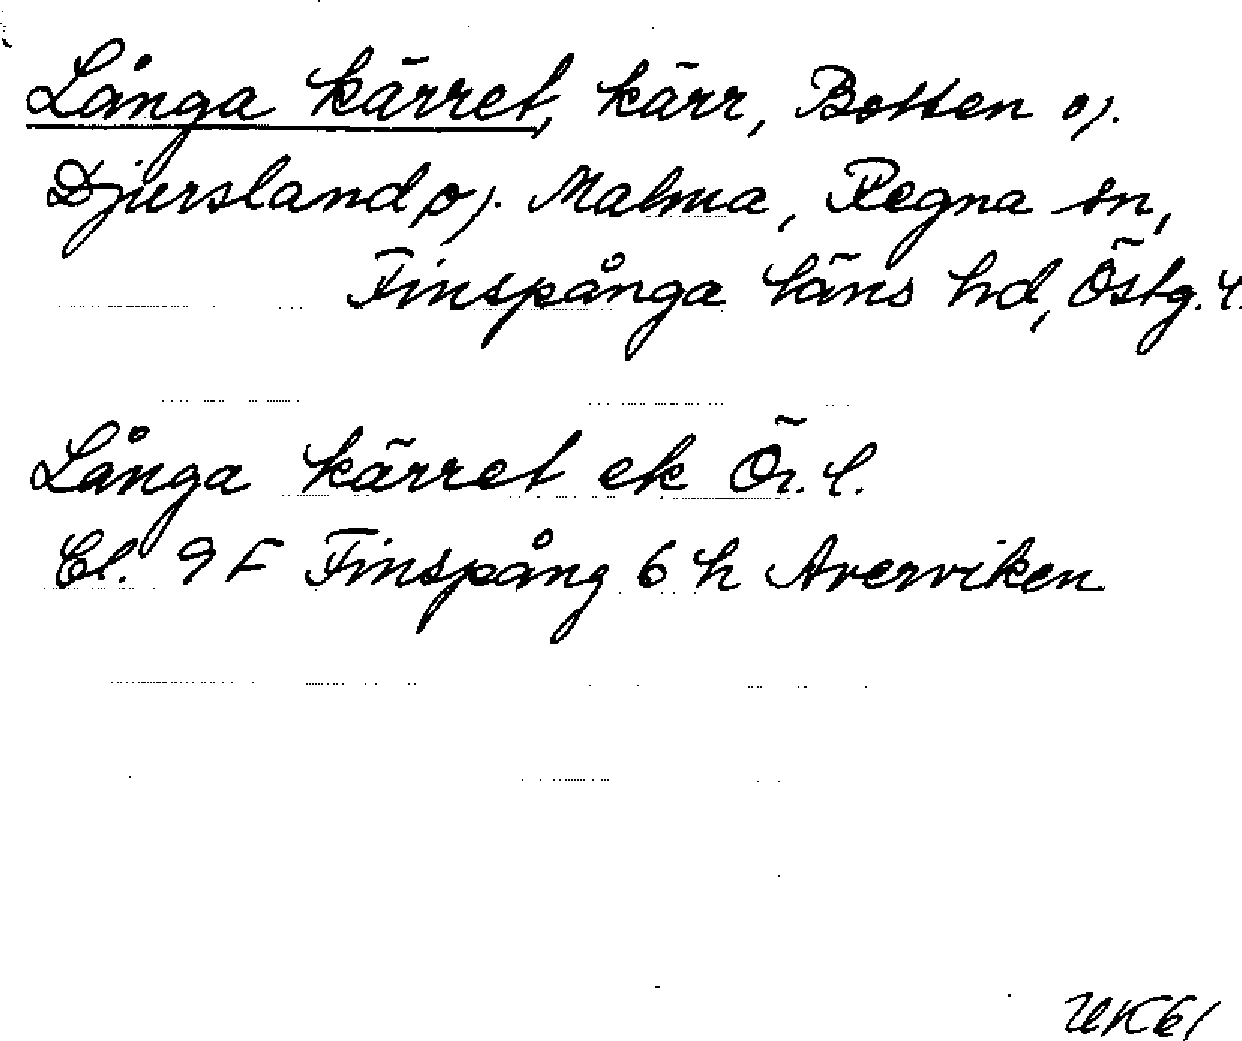 Långa kärret, kärr, Botten oj.
Djursland oj. Malma, Regna sn,
Finspånga läns hd, Östg. l.
Långa kärret ek Ör. l.
Bl. 9 F Finspång 6 h Averviken
UK61